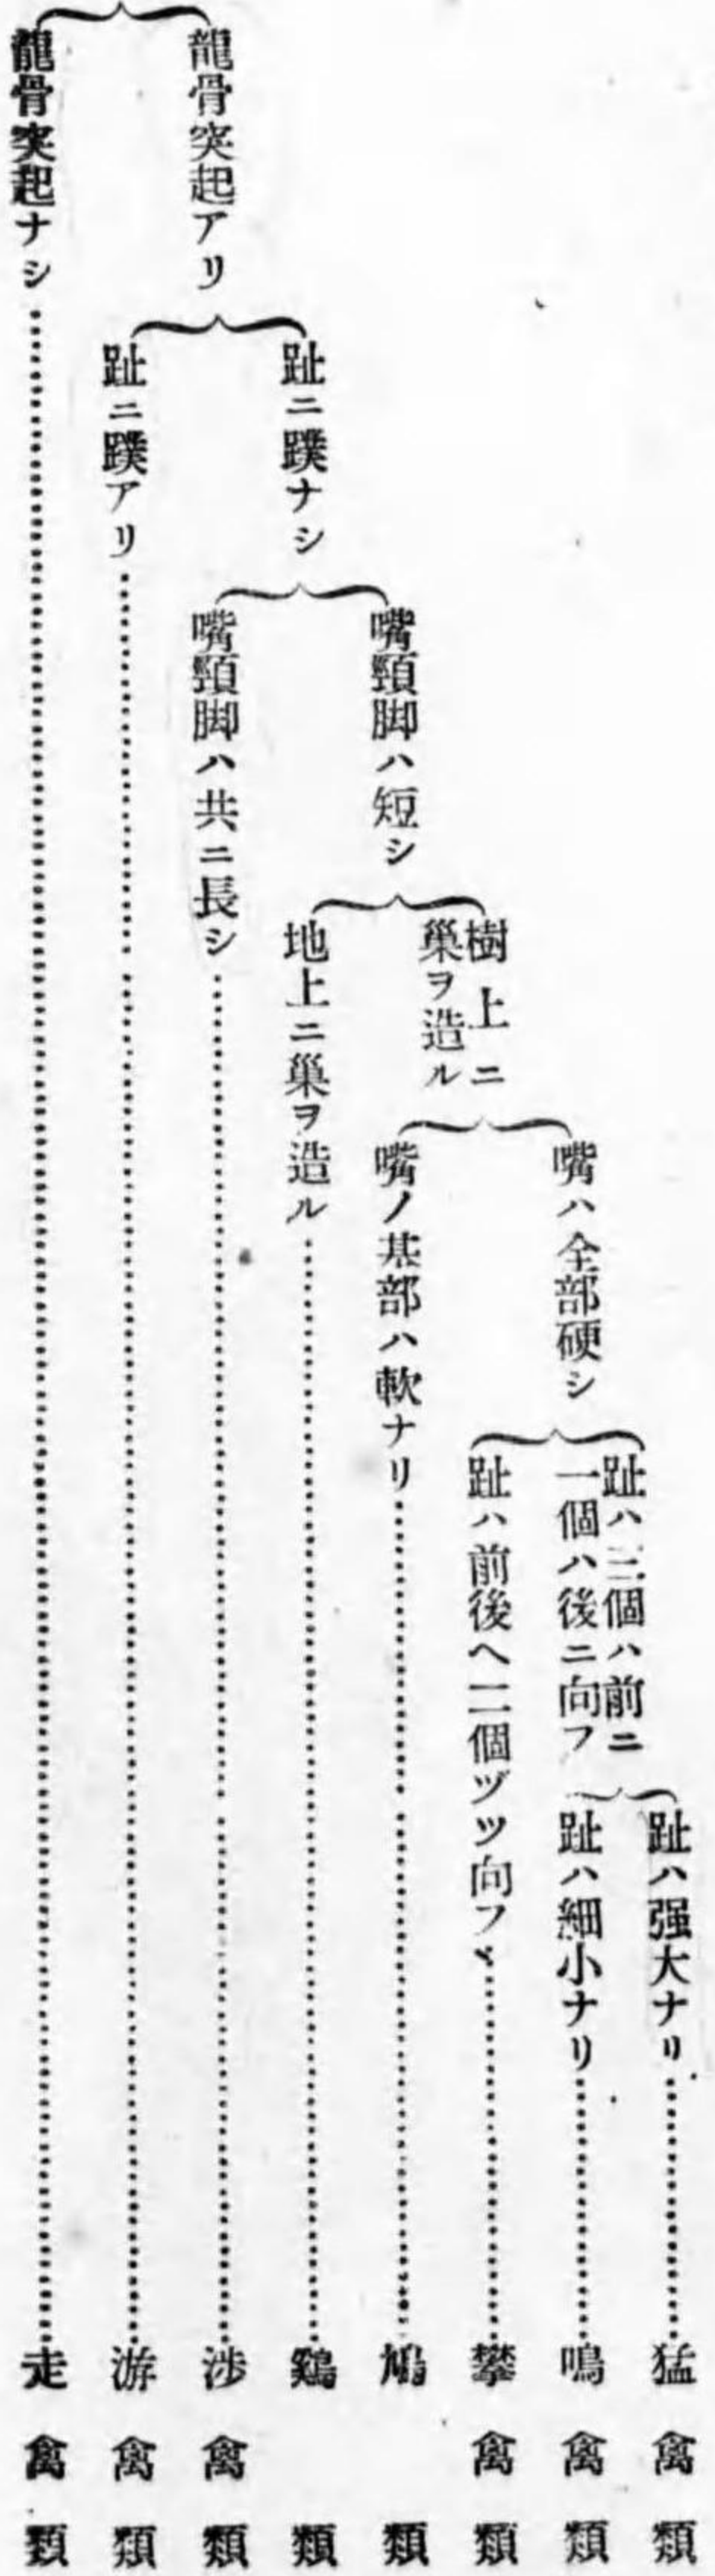 龍骨突起アリ
趾ニ蹼ナシ
嘴頸脚ハ短シ
樹上ニ
巢ヲ造ル
嘴ハ全部硬シ
趾ハ三個ハ前ニ
一個ハ後ニ向フ
趾ハ强大ナリ……猛禽類
趾ハ細小ナリ……鳴禽類
趾ハ前後ヘ二個ヅツ向フ……攀禽類
嘴ノ基部ハ軟ナリ……鳩類
地上ニ巢ヲ造ル……鷄類
嘴頸脚ハ共ニ長シ……涉禽類
趾ニ蹼アリ……游禽類
龍骨突起ナシ……走禽類